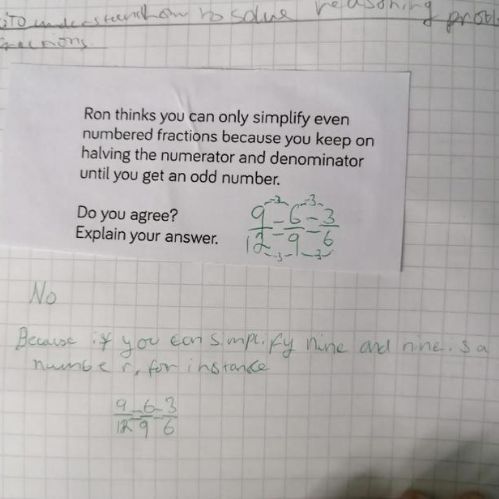 to understand how to solve reasoning
Ron thinks you can only simplify even
numbered fractions because you keep on
halving the numerator and denominator
until you get an odd number.
Do you agree?
Explain your answer.
9/12 = 6/9 = 3/6
-3 -3
-3 -3
No
Because if you can simplify nine and nine is a
number, for instance
9/12 = 6/9 = 3/6